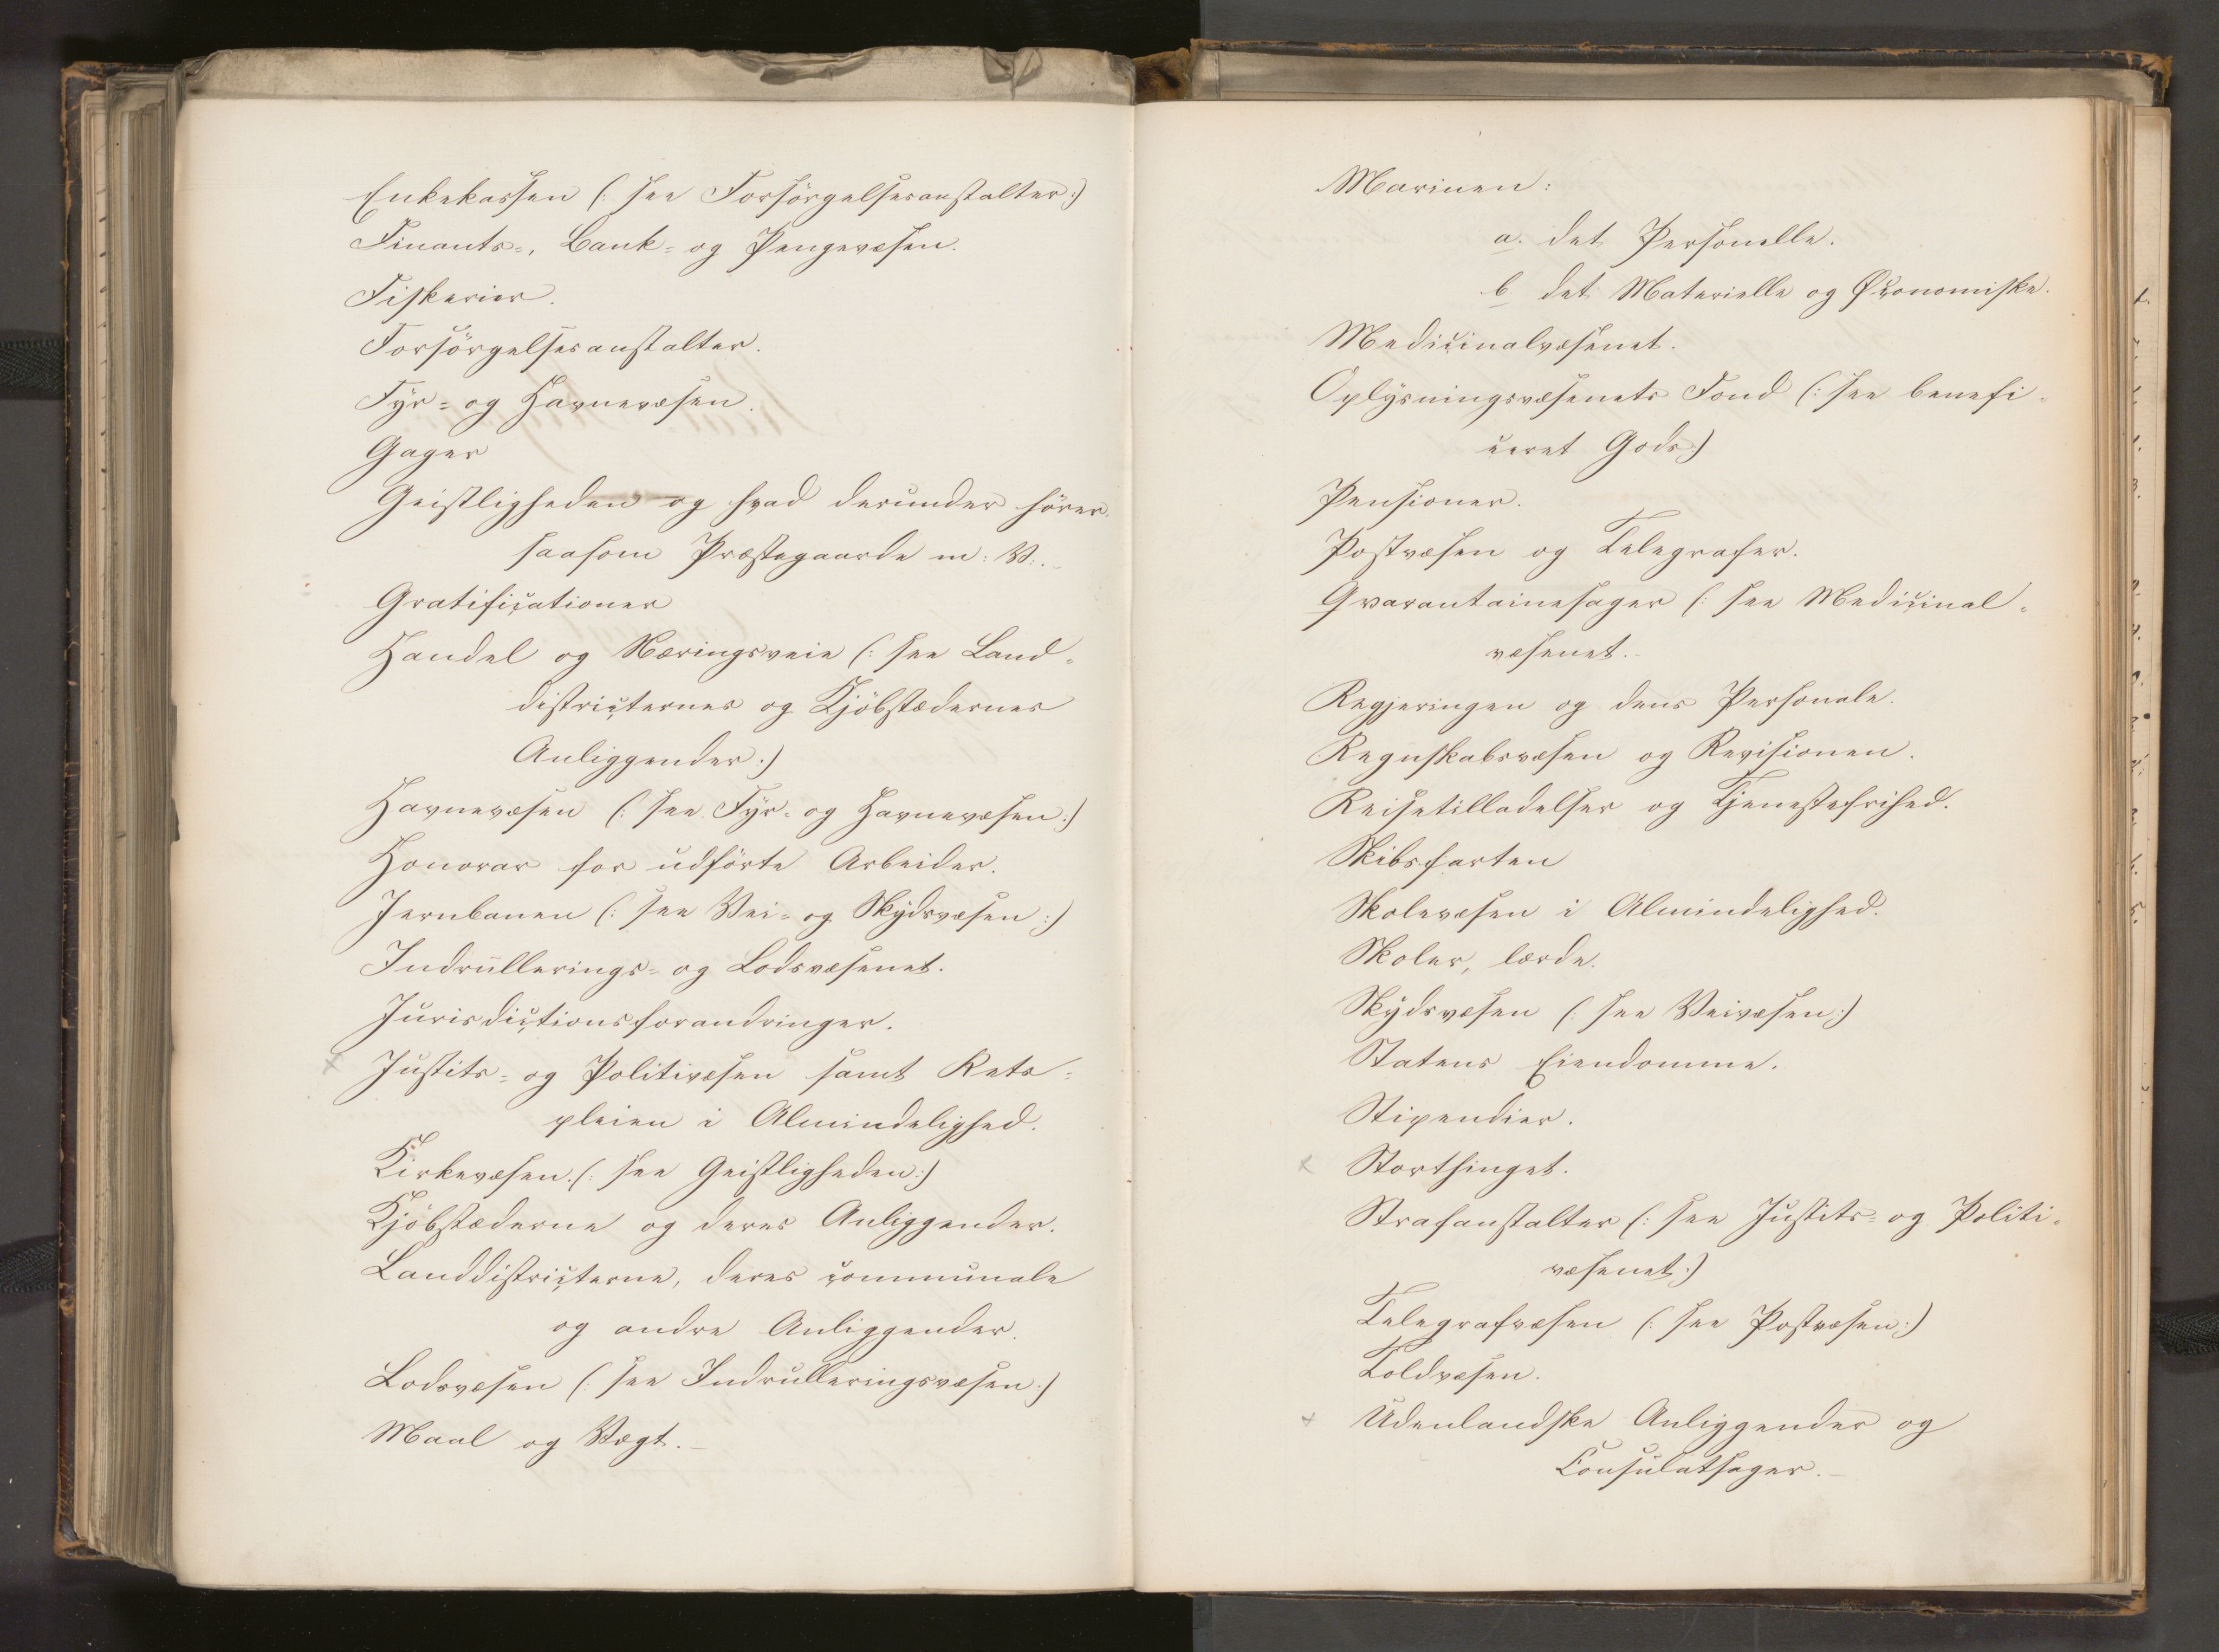 Enkekassen (: see Forsörgelsesanstalter:)
Finants-, Bank- og Pengevæsen.
Fiskerier.
Forsörgelsesanstalter.
Fyr- og Havnevæsen.
Gager
Geistligheden og hvad derunder hörer.
saasom Præstegaarde m: V:.
Gratificationer
Handel og Næringsveie (: see Land-
districternes og Kjöbstædernes
Anliggender:)
Havnevæsen (: see Fyr- og Havnevæsen:)
Honorar for udförte Arbeider.
Jernbanen (: see Vei- og Skydsvæsen:)
Indrullerings- og Lodsvæsenet.
Jurisdictionsforandringer.
x Justits- og Politivæsen samt Rets-
pleien i Almindelighed.
Kirkevæsen. (: see Geistligheden:)
Kjöbstæderne og deres Anliggender.
Landdistricterne, deres communale
og andre Anliggender.
Lodsvæsen (: see Indrulleringsvæsen:)
Maal og Vægt.
Marinen:
a. det Personelle.
b det Materielle og Øconomiske.
Medicinalvæsenet.
Oplysningsvæsenets Fond (: see benefi-
ceret Gods:)
Pensioner.
Postvæsen og Telegrafer.
Qvarantainesager (: see Medicinal-
væsenet.
Regjeringen og dens Personale.
Regnskabsvæsen og Revisionen.
Reisetilladelser og Tjenestefrihed.
Skibsfarten
Skolevæsen i Almindelighed.
Skoler, lærde.
Skydsvæsen (: see Veivæsen:)
Statens Eiendomme.
Stipendier.
x Storthinget.
Strafanstalter (: see Justits- og Politi-
væsenet:)
Telegrafvæsen (: see Postvæsen:)
Toldvæsen.
x Udenlandske Anliggender og
Consulatsager.